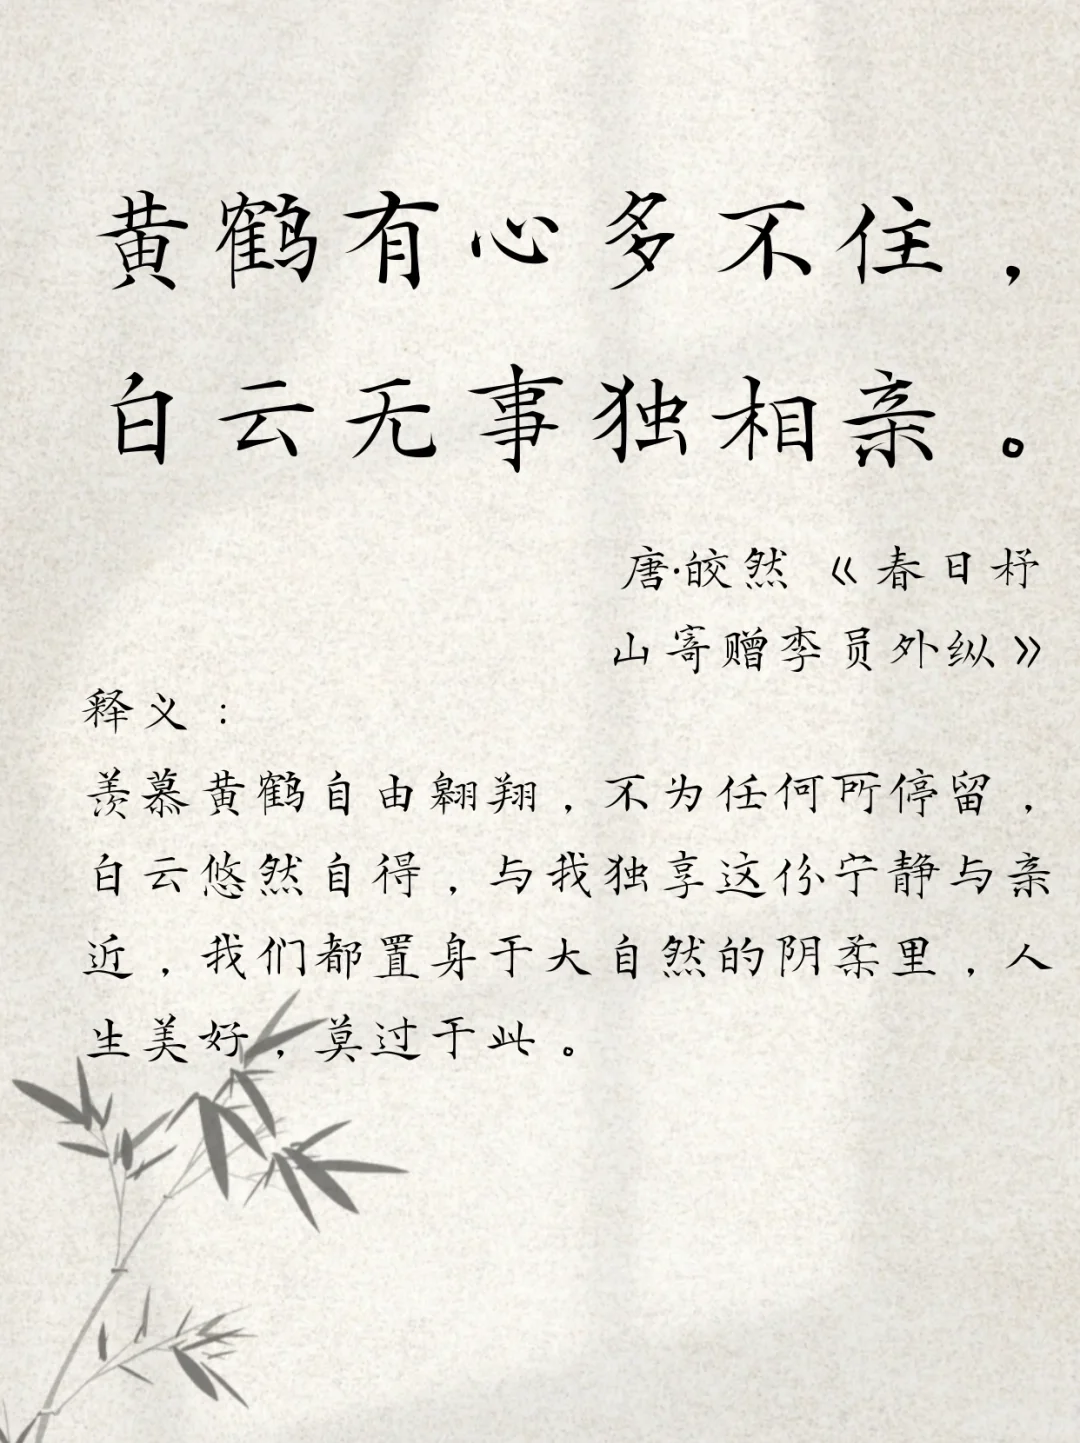 黄鹤有心多不住，
白云无事独相亲。
唐·皎然《春日杼
山寄赠李员外纵》
释义：
羡慕黄鹤自由翱翔，不为任何所停留，
白云悠然自得，与我独享这份宁静与亲
近，我们都置身于大自然的阴柔里，人
生美好，莫过于此。